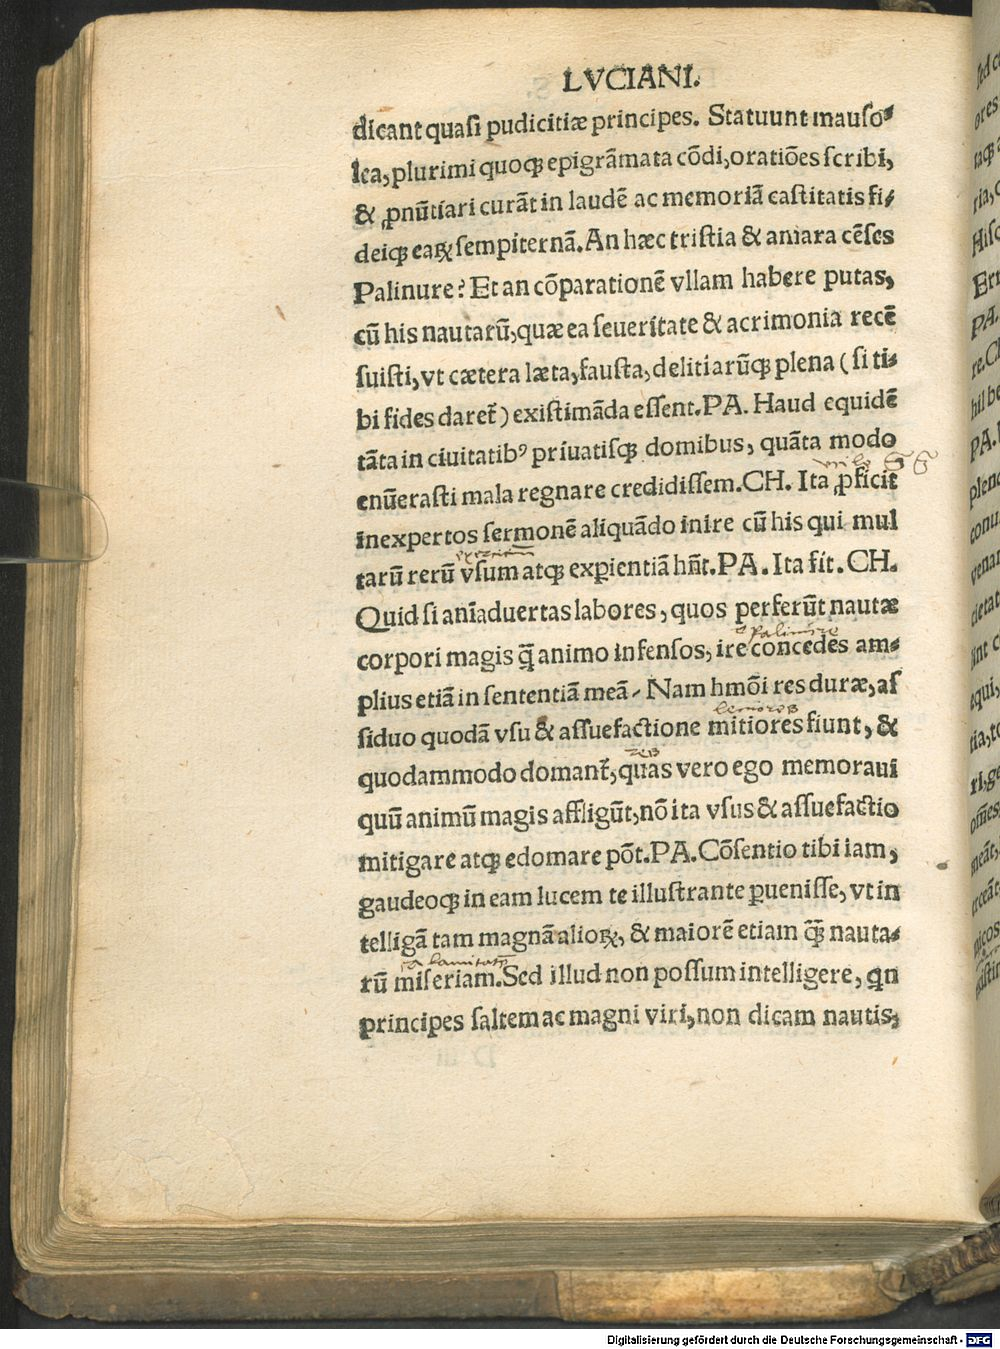 LVCIANI.
dicant quasi pudicitiæ principes. Statuunt mauso⸗
lea, plurimi quoq; epigrãmata cõdi, oratiões scribi,
& ꝓnũtiari curãt in laudẽ ac memoriã castitatis fi⸗
deiq; eaꝝ sempiternã. An hæc tristia & amara cẽses
Palinure? Et an cõparationẽ vllam habere putas,
cũ his nautarũ, quæ ea seueritate & acrimonia recẽ
suisti, vt cætera læta, fausta, delitiarũq; plena (si ti⸗
bi fides daret̃) existimãda essent. PA. Haud equidẽ
tãta in ciuitatibꝰ priuatisq; domibus, quãta modo
enũerasti mala regnare credidissem. CH. Ita ꝓficit
inexpertos sermonẽ aliquãdo inire cũ his qui mul
tarũ rerũ vsum atq; exꝑientiã hñt. PA. Ita fit. CH.
Quid si aniãduertas labores, quos perferũt nautæ
o Palinure
corpori magis q̃ animo infensos, ire concedes am⸗
plius etiã in sententiã meã. Nam hmõi res duræ, as
leniores
siduo quodã vsu & assuefactione mitiores fiunt, &
res
quodammodo domant̃, quas vero ego memoraui
quũ animũ magis affligũt, nõ ita vsus & assuefactio
mitigare atq; edomare põt. PA. Cõsentio tibi iam,
gaudeoq; in eam lucem te illustrante ꝑuenisse, vt in
telligã tam magnã alioꝝ, & maiorẽ etiam q̃ nauta⸗
calamitatẽ
rũ miseriam. Sed illud non possum intelligere, qn
principes saltem ac magni viri, non dicam nautis,
Digitalisierung gefördert durch die Deutsche Forschungsgemeinschaft - DFG